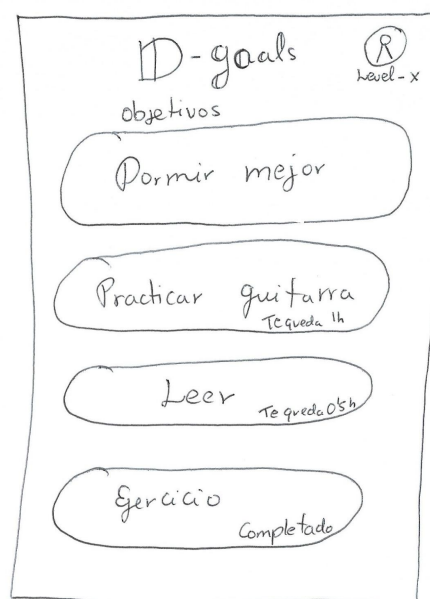 D-goals
R
Level-x
Objetivos
Dormir mejor
Practicar guitarra
Te queda 1h
Leer
Te queda 0'5h
Ejercicio
Completado